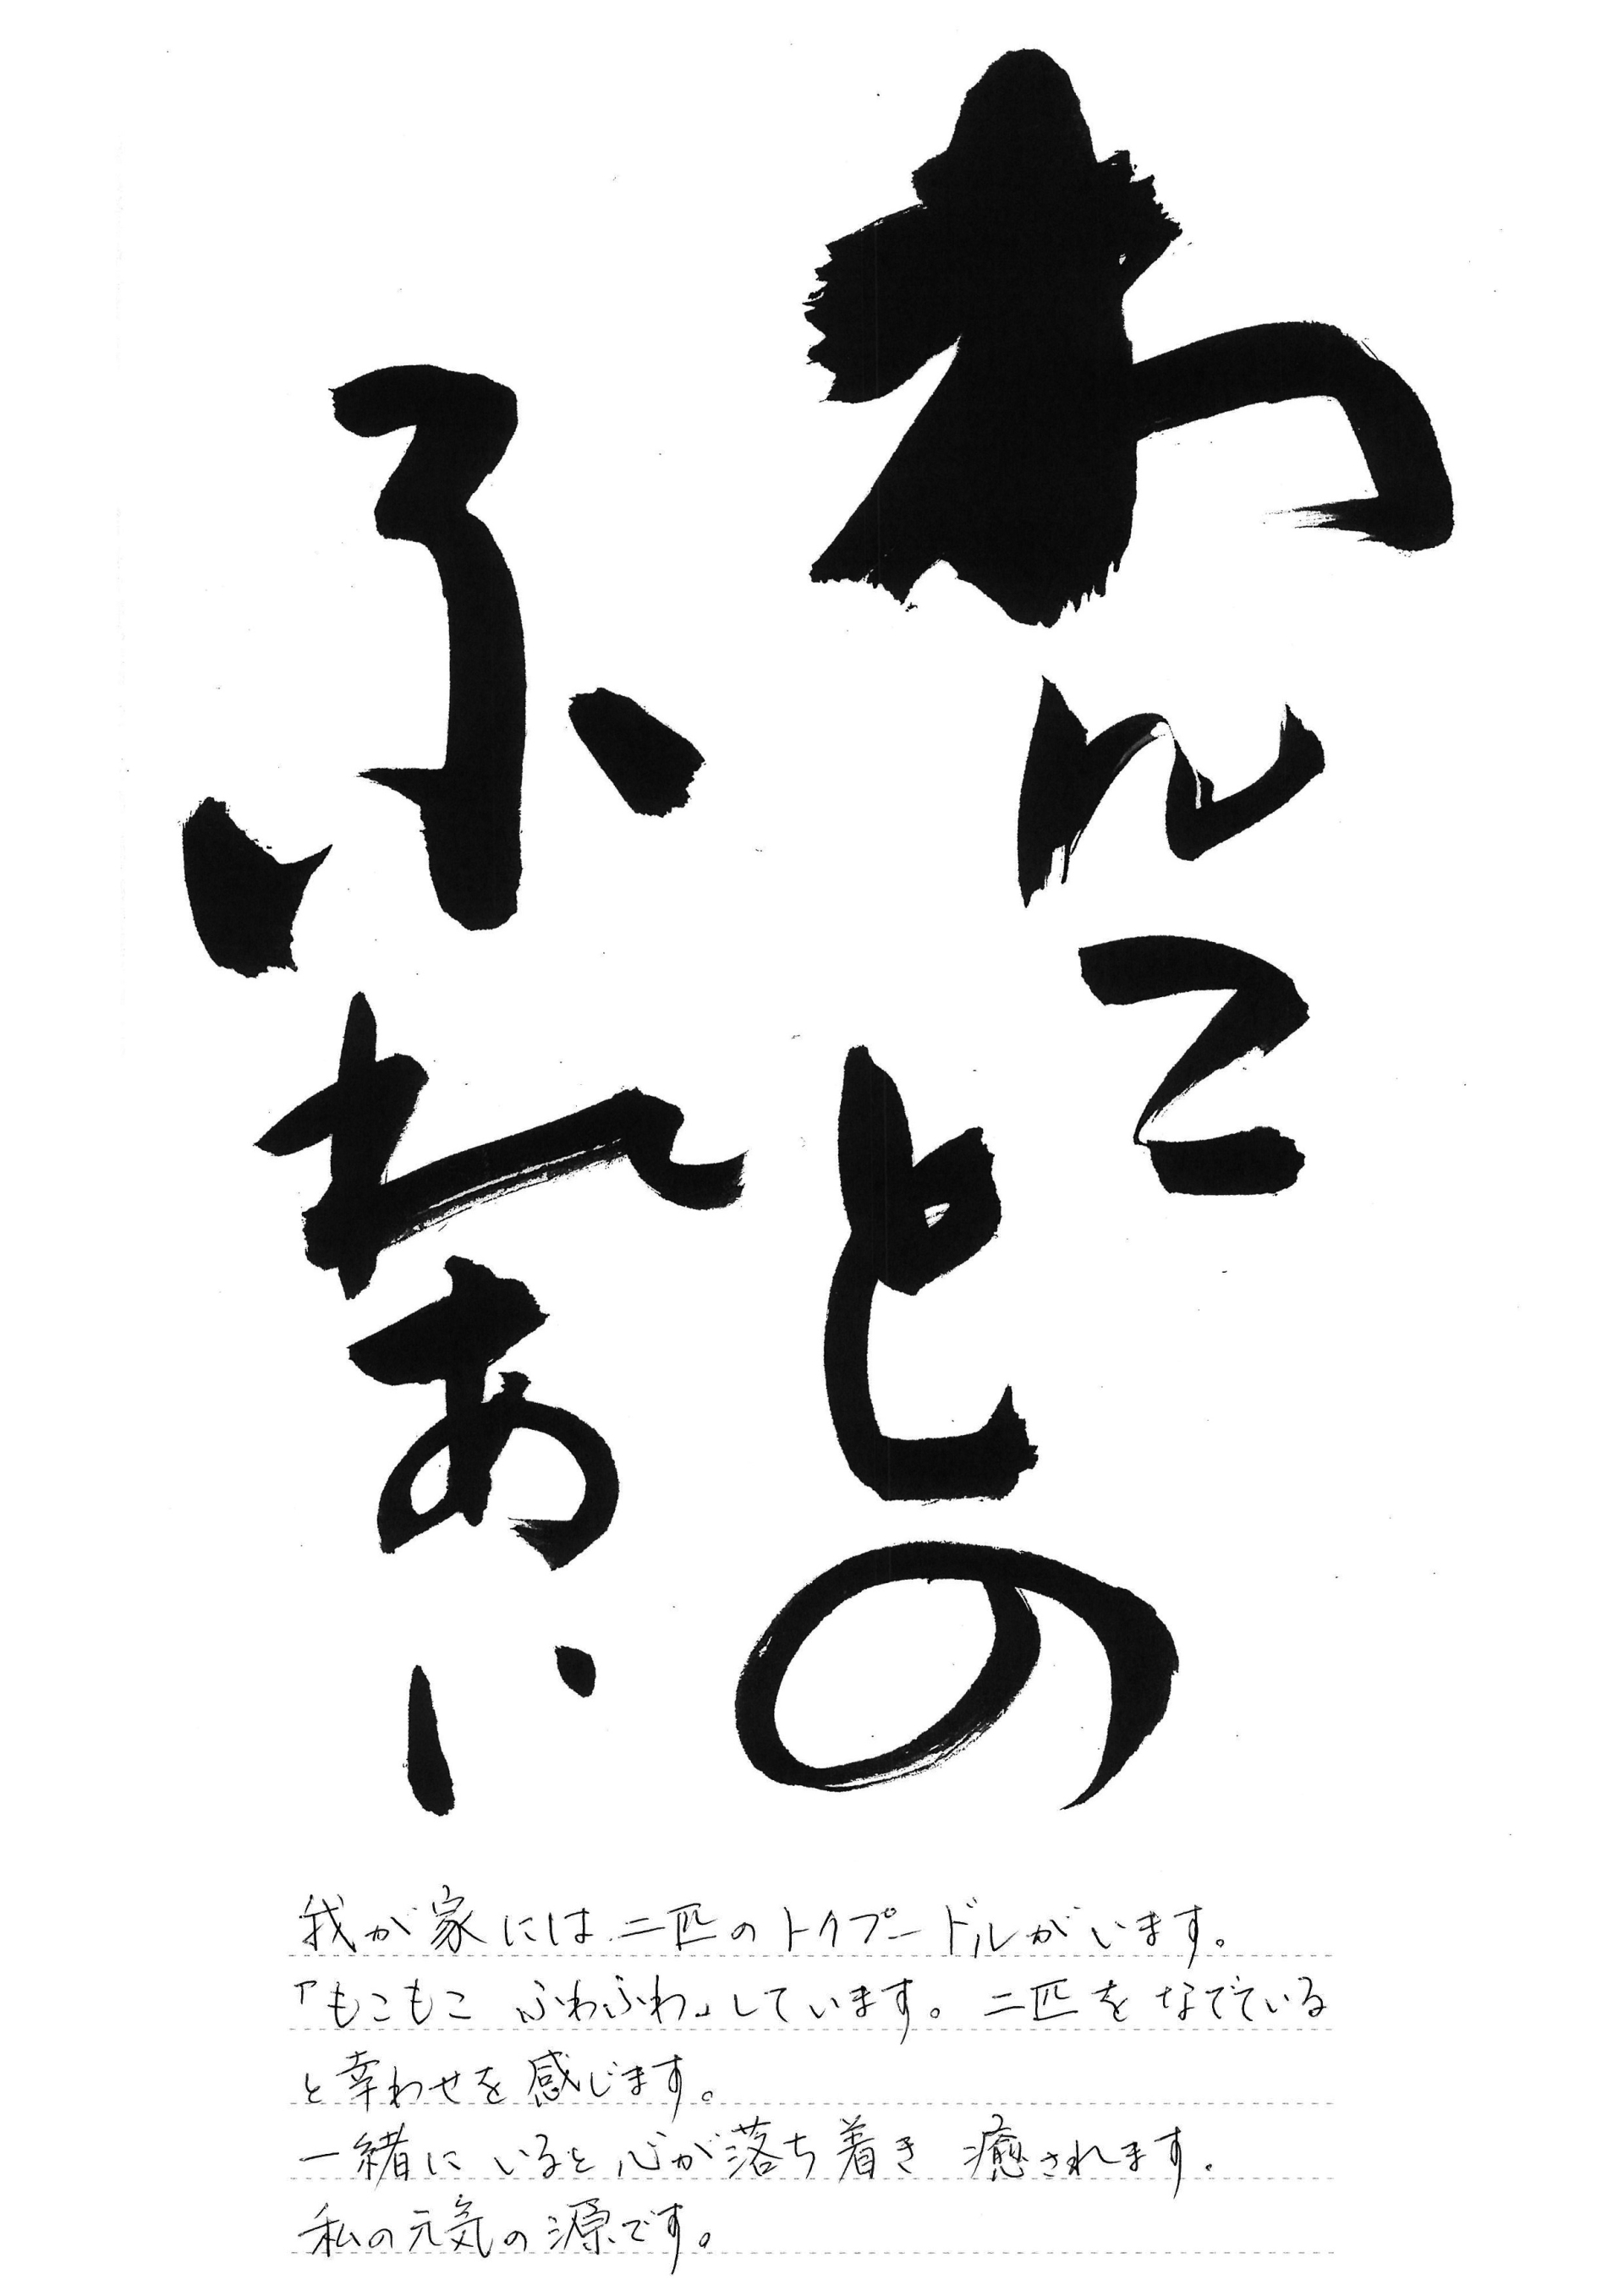 わんことの
ふれあい
我が家には二匹のトイプードルがいます。
「もこもこ ふわふわ」しています。二匹をなでている
と幸わせを感じます。
一緒に いると心が落ち着き 癒されます。
私の元気の源です。